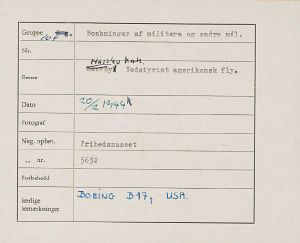 Gruppe 10F. Bombninger af militære og andre mål.
Nr.
Emne Nedstyrtet amerikansk fly.
Dato 20/2 1944
Fotograf
Neg. opbev. Frihedsmuseet
„ nr. 5632
Forbehold
Særlige bemærkninger BOEING B17, USA.